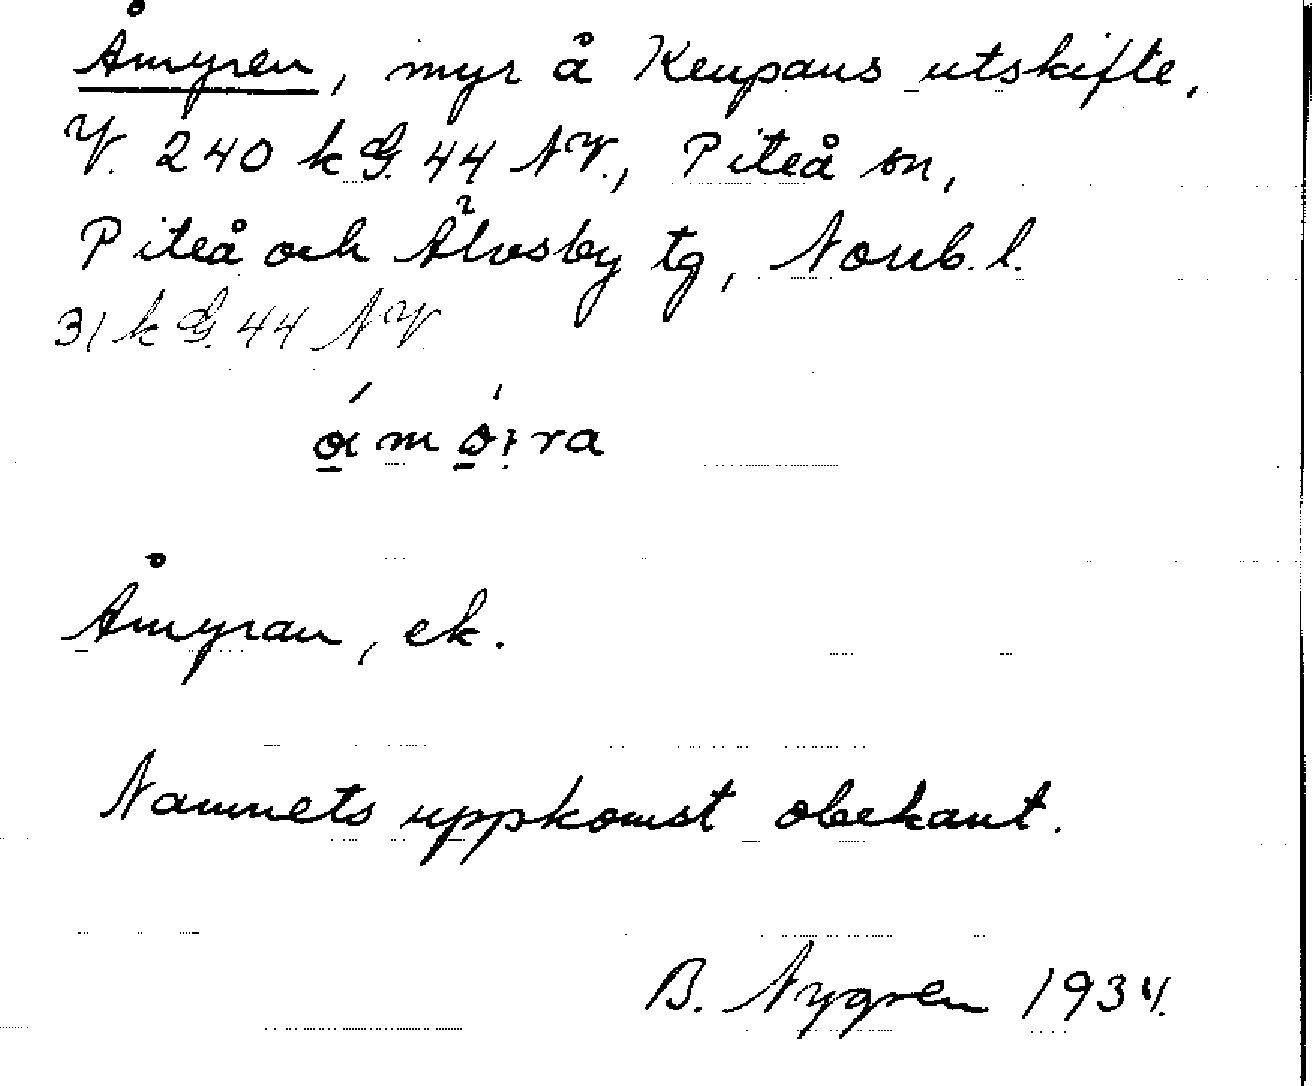 Åmyren, myr å Keupans utskifte,
V. 240 k G. 44 NV., Piteå sn,
Piteå och Älvsby tg, Norrb. l.
31 k G. 44 NV
Åmyran, ek.
Namnets uppkomst obekant.
B. Nygren 1934.